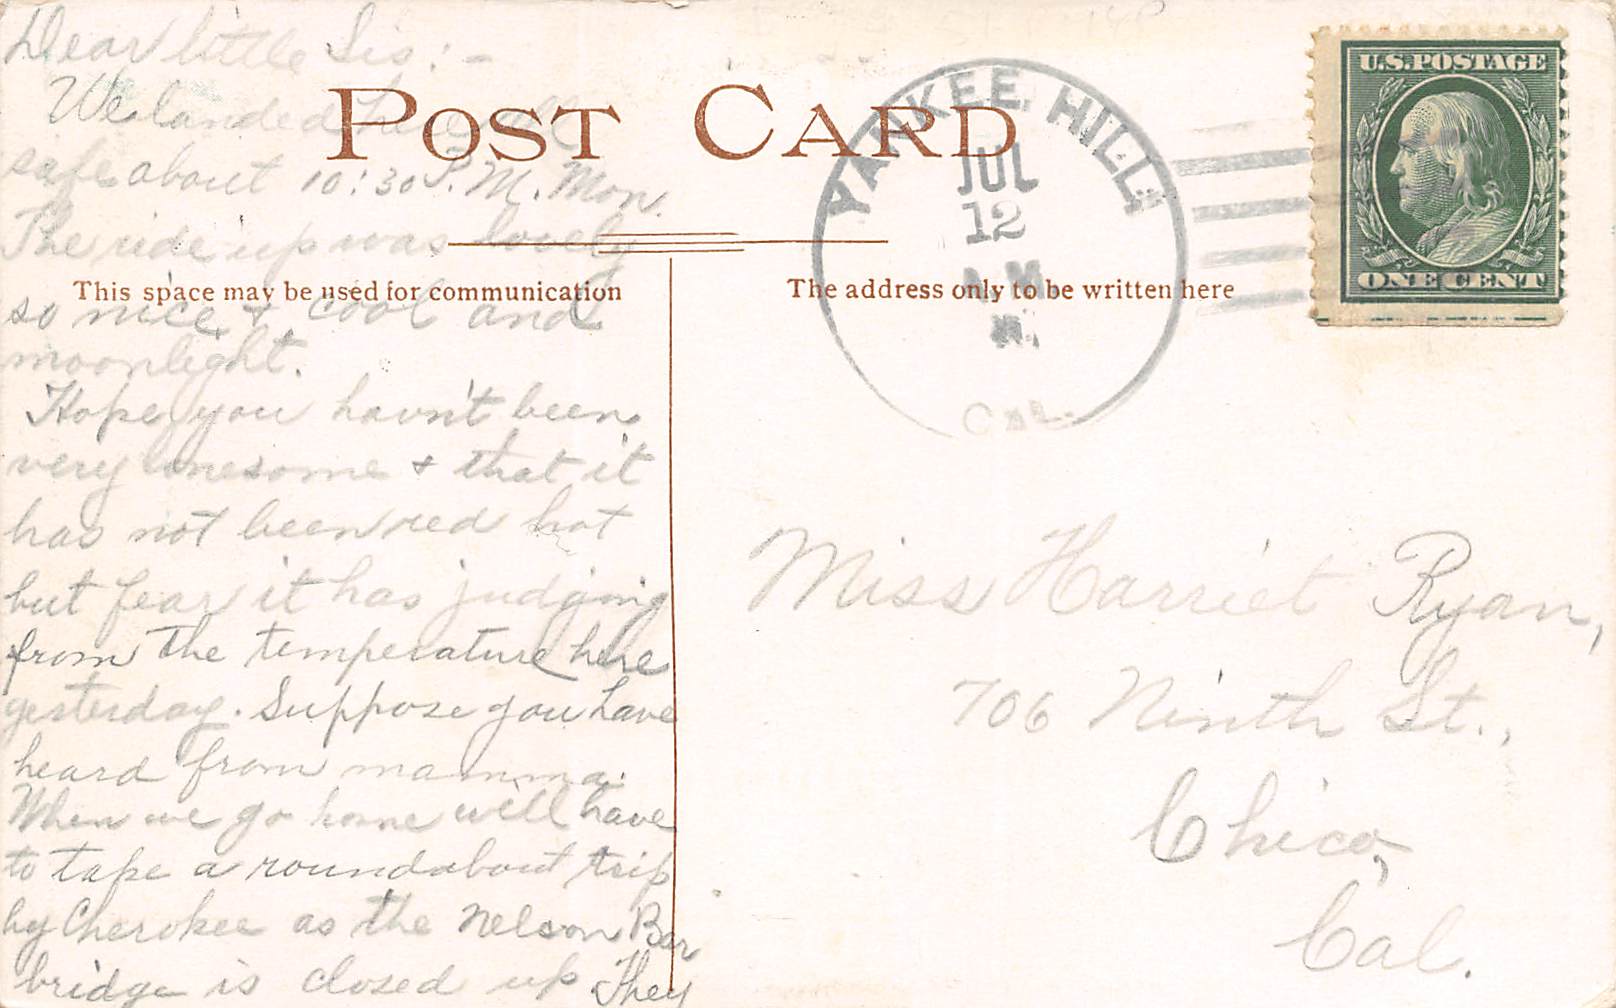 Dear little Sis:-
We landed here all
safe about 10:30 P.M. Mon.
The ride up was lovely
so nice & cool and
moonlight.
Hope you havn't been
very lonesome & that it
has not been red hot
but fear it has judging
from the temperature here
yesterday. Suppose you have
heard from mamma.
When we go home will have
to take a roundabout trip
by Cherokee as the Nelson Bar
bridge is closed up. They
POST CARD
This space may be used for communication
The address only to be written here
YANKEE HILL
JUL
12
A.M.
CAL.
U.S. POSTAGE
ONE CENT
Miss Harriet Ryan,
706 Ninth St.,
Chico,
Cal.